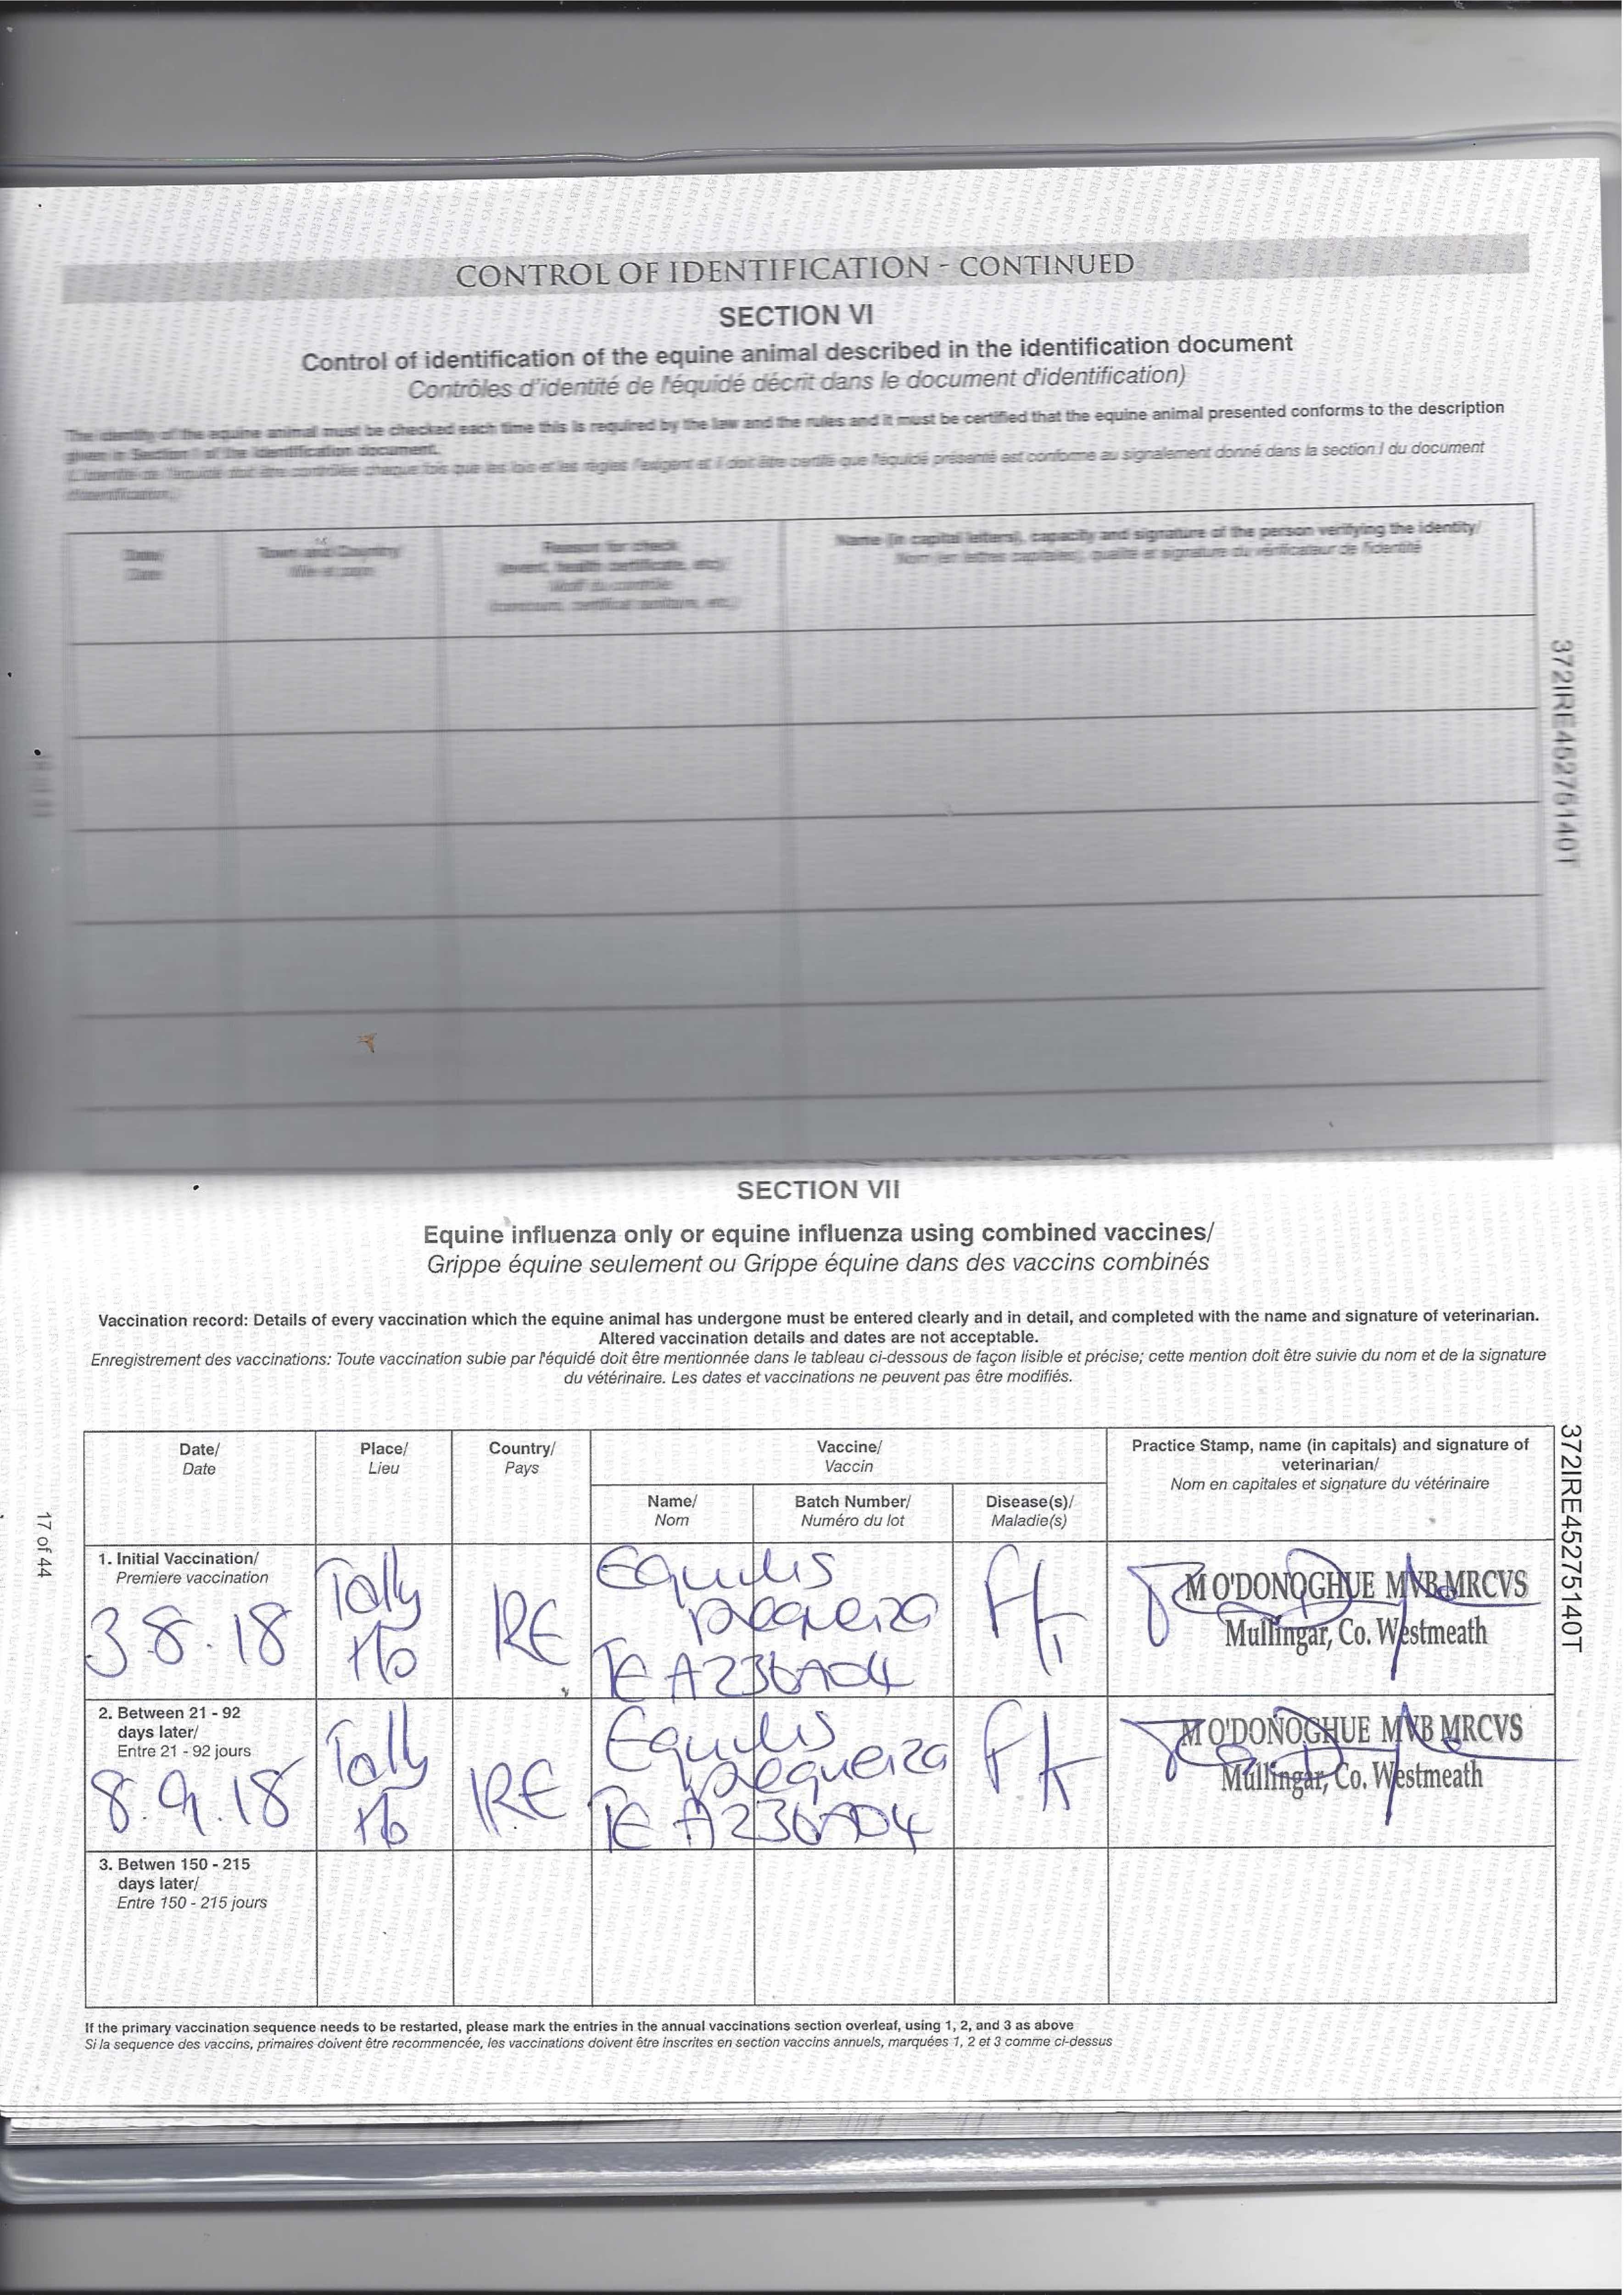 CONTROL OF IDENTIFICATION - CONTINUED
SECTION VI
Control of identification of the equine animal described in the identification document
Contrôles d'identité de l'équidé décrit dans le document d'identification)
The identity of the equine animal must be checked each time this is required by the law and the rules and it must be certified that the equine animal presented conforms to the description
given in Section I of the identification document.
L'identité de l'équidé doit être contrôlée chaque fois que les lois et les règles l'exigent et il doit être certifié que l'équidé présenté est conforme au signalement donné dans la section I du document
d'identification.
Date/
Date
Town and Country/
Ville et pays
Reason for check
(event, health certificate, etc)/
Motif du contrôle
(concours, certificat sanitaire, etc.)
Name (in capital letters), capacity and signature of the person verifying the identity/
Nom (en lettres capitales), qualité et signature du vérificateur de l'identité
372IRE45275140T
SECTION VII
Equine influenza only or equine influenza using combined vaccines/
Grippe équine seulement ou Grippe équine dans des vaccins combinés
Vaccination record: Details of every vaccination which the equine animal has undergone must be entered clearly and in detail, and completed with the name and signature of veterinarian.
Altered vaccination details and dates are not acceptable.
Enregistrement des vaccinations: Toute vaccination subie par l'équidé doit être mentionnée dans le tableau ci-dessous de façon lisible et précise; cette mention doit être suivie du nom et de la signature
du vétérinaire. Les dates et vaccinations ne peuvent pas être modifiés.
Date/
Date
Place/
Lieu
Country/
Pays
Vaccine/
Vaccin
Name/
Nom
Batch Number/
Numéro du lot
Disease(s)/
Maladie(s)
Practice Stamp, name (in capitals) and signature of
veterinarian/
Nom en capitales et signature du vétérinaire
1. Initial Vaccination/
Premiere vaccination
3.8.18
Tally
Ho
IRE
Equilis
prequenza
TE A236A04
M O'DONOGHUE MVB MRCVS
Mullingar, Co. Westmeath
2. Between 21 - 92
days later/
Entre 21 - 92 jours
8.9.18
Tally
Ho
IRE
Equilis
prequenza
TE A236A04
M O'DONOGHUE MVB MRCVS
Mullingar, Co. Westmeath
3. Betwen 150 - 215
days later/
Entre 150 - 215 jours
If the primary vaccination sequence needs to be restarted, please mark the entries in the annual vaccinations section overleaf, using 1, 2, and 3 as above
Si la sequence des vaccins, primaires doivent être recommencée, les vaccinations doivent être inscrites en section vaccins annuels, marquées 1, 2 et 3 comme ci-dessus
17 of 44
372IRE45275140T